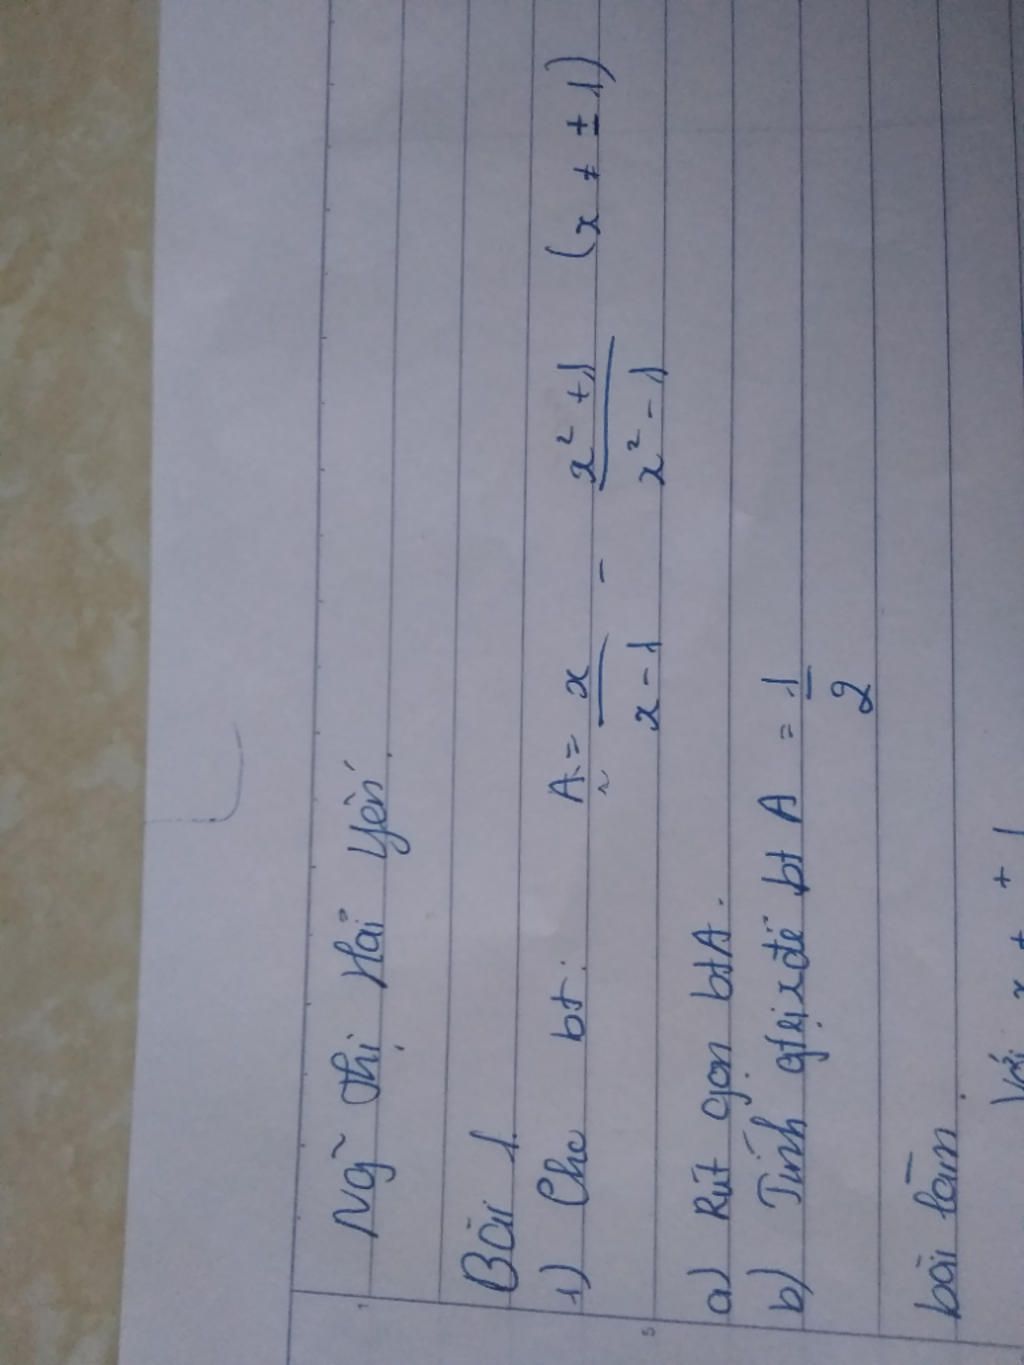 Ngỹ Thị Hải Yến
Bài 1
1) Cho bt: A = x/(x - 1) - (x² + 1)/(x² - 1) (x ≠ ± 1)
a) Rút gọn bt A.
b) Tính gtrị x để bt A = 1/2
bài làm
Với x ≠ ± 1